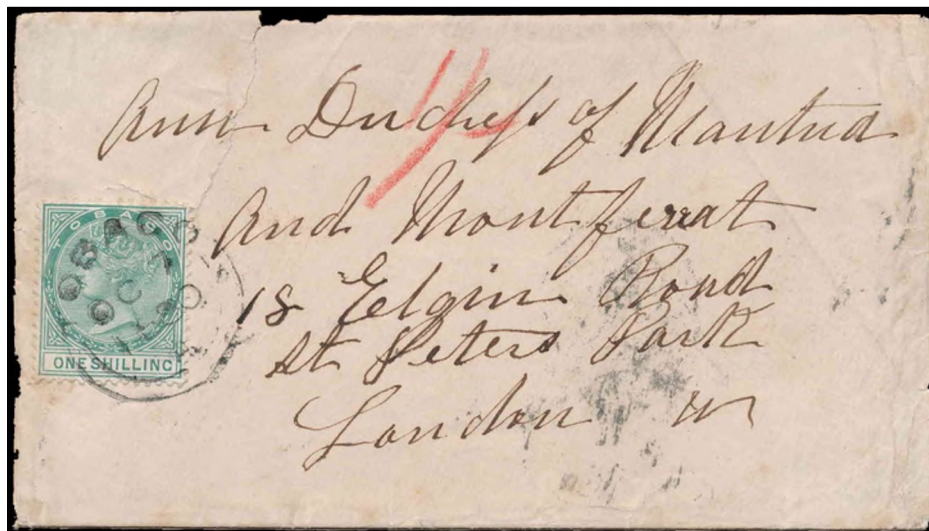 1/-
Ann Duchess of Mantua
And Montferrat
18 Elgin Road
St Peters Park
London W
TOBAGO
TOBAGO
OC 7
80
ONE SHILLING